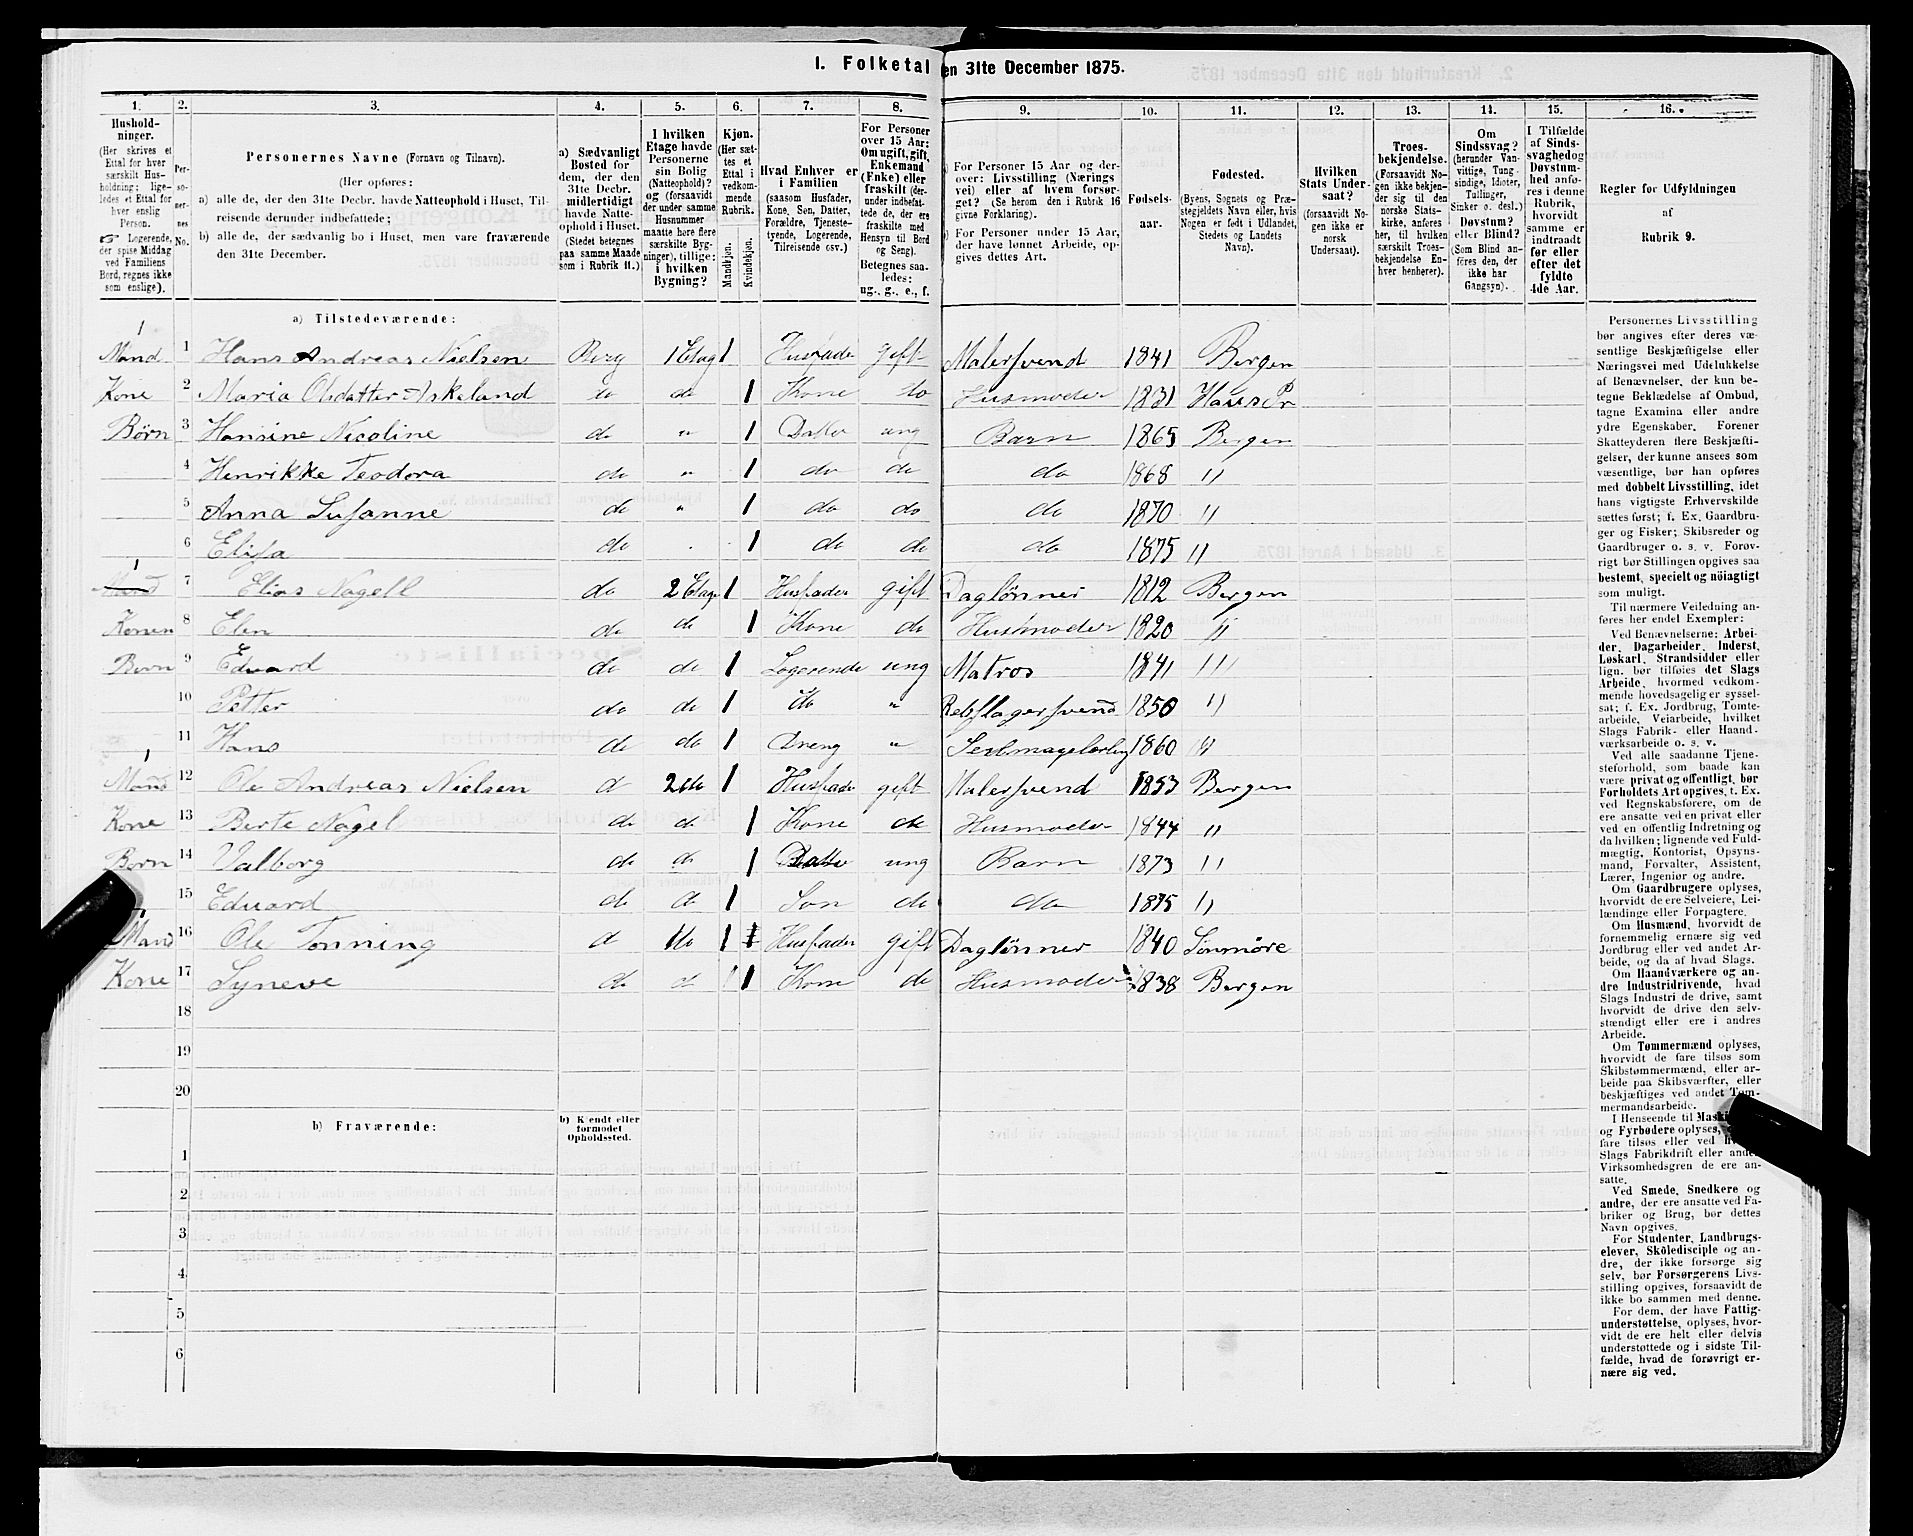 1. Folketal den 31te December 1875.
1. 2. 3. 4. 5. 6. 7. 8. 9. 10. 11. 12. 13. 14. 15. 16.
Hushold-
ninger.
(Her skrives et
Ettal for hver
særskilt Hus-
holdning; lige-
ledes et Ettal for
hver enslig
Person.
☞ Logerende,
der spise Middag
ved Familiens
Bord, regnes ikke
som enslige).
Per-
so-
ner-
nes
No.
Personernes Navne (Fornavn og Tilnavn).
(Her opføres:
a) alle de, der den 31te Decbr. havde Natteophold i Huset, Til-
reisende derunder indbefattede;
b) alle de, der sædvanlig bo i Huset, men vare fraværende
den 31te December.
a) Sædvanligt
Bosted for
dem, der den
31te Decbr.
midlertidigt
havde Natte-
ophold i Huset.
(Stedet betegnes
paa samme Maade
som i Rubrik 11.)
I hvilken
Etage havde
Personerne
sin Bolig
(Natteophold)?
og (forsaavidt
der under samme
Husnummer
maatte høre flere
særskilte Byg-
ninger), tillige:
i hvilken
Bygning?
Kjøn.
(Her sæt-
tes et
Ettal i
vedkom-
mende
Rubrik.
Mandkjøn.
Kvindekjøn.
Hvad Enhver er
i Familien
(saasom Husfader,
Kone, Søn, Datter,
Forældre, Tjeneste-
tyende, Logerende,
Tilreisende osv.)
For Personer
over 15 Aar:
Om ugift, gift,
Enkemand
(Enke) eller
fraskilt (der-
under indbefat-
tede de, der ere
fraskilte med
Hensyn til Bord
og Seng).
Betegnes saa-
ledes:
ug., g., e., f.
For Personer 15 Aar og der-
over: Livsstilling (Nærings
vei) eller af hvem forsør-
get? (Se herom den i Rubrik 16
givne Forklaring).
For Personer under 15 Aar,
der have lønnet Arbeide, op-
gives dettes Art.
Fødsels-
aar.
Fødested.
(Byens, Sognets og Præ-
stegjeldets Navn eller, hvis
Nogen er født i Udlandet,
Stedets og Landets
Navn).
Hvilken
Stats Under-
saat?
(forsaavidt No-
gen ikke er
norsk
Undersaat).
Troes-
bekjendelse.
(Forsaavidt No-
gen ikke bekjen-
der sig til den
norske Stats-
kirke, anføres
her, til hvilken
særskilt Troes-
bekjendelse En-
hver henhører).
Om
Sindssvag?
(herunder Van-
vittige, Tung-
sindige, Idioter,
Tullinger,
Sinker o. desl.)
Døvstum?
eller Blind?
(Som Blind an-
føres den, der
ikke har
Gangsyn).
I Tilfælde
af Sinds-
svaghed og
Døvstum-
hed anfø-
res i denne
Rubrik,
hvorvidt
samme er
indtraadt
før eller
efter det
fyldte
4de Aar.
Regler for Udfyldningen
af
Rubrik 9.
a) Tilstedeværende:
1
Mand 1 Hans Andreas Nielsen Berg 1 Etag 1 Husfader gift Malersvend 1841 Bergen
Kone 2 Maria Olsdatter Askeland do do 1 Kone do Husmoder 1831 Haus Pr
Børn 3 Hansine Nicoline do " 1 Datter ung Barn 1865 Bergen
4 Henrikke Teodora do " 1 do do do 1868 "
5 Anna Susanne do " 1 do do do 1870 "
6 Elisa do 1 do do do 1875 "
1
Mand 7 Elias Nagell do 2 Etage 1 Husfader gift Daglønner 1812 Bergen
Konen 8 Elen do do 1 Kone do Husmoder 1820 "
Born 9 Edvard do do 1 Logerende ung Matros 1841 "
10 Petter do do 1 do " Rebslagersvend 1850 "
11 Hans do do 1 Dreng " 1860 "
1
Mand 12 Ole Andreas Nielsen d 2 do 1 Husfader gift Malersvend 1853 Bergen
Kone 13 Berte Nagel do d 1 Kone do Husmoder 1844 "
Born 14 Valborg do d 1 Datter ung Barn 1873 "
15 Eduard do d 1 Son do do 1875 "
1
Mand 16 Ole Tonning d 1 do 1 Husfader gift Daglønner 1840 Sönmöre
Kone 17 Syneve do d 1 Kone do Husmoder 1838 Bergen
18
19
20
b) Fraværende:
b) Kjendt eller
formodet
Opholdssted.
1
2
3
4
5
6
Personernes Livsstilling
bør angives efter deres væ-
sentlige Beskjæftigelse eller
Næringsvei med Udelukkelse
af Benævnelser, der kun be-
tegne Beklædelse af Ombud,
tagne Examina eller andre
ydre Egenskaber. Forener
Skatteyderen flere Beskjæfti-
gelser, der kunne ansees som
væsentlige, bør han opføres
med dobbelt Livsstilling, idet
hans vigtigste Erhvervskilde
sættes først; f. Ex. Gaardbru-
ger og Fisker; Skibsreder og
Gaardbruger o. s. v. Forøv-
rigt bør Stillingen opgives saa
bestemt, specielt og nöiagtigt
som muligt.
Til nærmere Veiledning an-
føres her endel Exempler:
Ved Benævnelserne: Arbei-
der, Dagarbeider, Inderst,
Løskarl, Strandsidder eller
lign. bør tilføies det Slags
Arbeide, hvormed vedkom-
mende hovedsagelig er syssel-
sat; f. Ex. Jordbrug, Tomte-
arbeide, Veiarbeide, hvilket
Slags Fabrik- eller Haand-
værksarbeide o. s. v.
Ved alle saadanne Tjene-
steforhold, som baade kan
være privat og offentligt, bør
Forholdets Art opgives, f. Ex.
ved Regnskabsførere, om de
ere ansatte ved en privat eller
ved en offentlig Indretning og
da hvilken; lignende ved Fuld-
mægtig, Kontorist, Opsyns-
mand, Forvalter, Assistent,
Lærer, Ingeniør og andre.
Om Gaardbrugere oplyses,
hvorvidt de ere Selveiere, Lei-
lændinge eller Forpagtere.
Om Husmænd, hvorvidt de
fornemmelig ernære sig ved
Jordbrug eller ved andet Ar-
beide, og da af hvad Slags.
Om Haandværkere og an-
dre Industridrivende, hvad
Slags Industri de drive, samt
hvorvidt de drive den selv-
stændigt eller ere i andres
Arbeide.
Om Tømmermænd oplyses,
hvorvidt de fare tilsøs som
Skibstømmermænd, eller ar-
beide paa Skibsværfter, eller
beskjæftiges ved andet Tøm-
mermandsarbeide.
I Henseende til
og Fyrbødere oplyses,
fare tilsøs eller ved
Slags Fabrikdrift eller
Virksomhedsgren de ere an-
satte.
Ved Smede, Snedkere og
andre, der ere ansatte ved Fa-
briker og Brug, bør dettes
Navn opgives.
For Studenter, Landbrugs-
elever, Skoledisciple og an-
dre, der ikke forsørge sig
selv, bør Forsørgerens Livs-
stilling opgives, forsaavidt de
ikke bo sammen med denne.
For dem, der have Fattig-
understøttelse, oplyses, hvor-
vidt de ere helt eller delvis
understøttede og i sidste Til-
fælde, hvad de forøvrigt er-
nære sig ved.